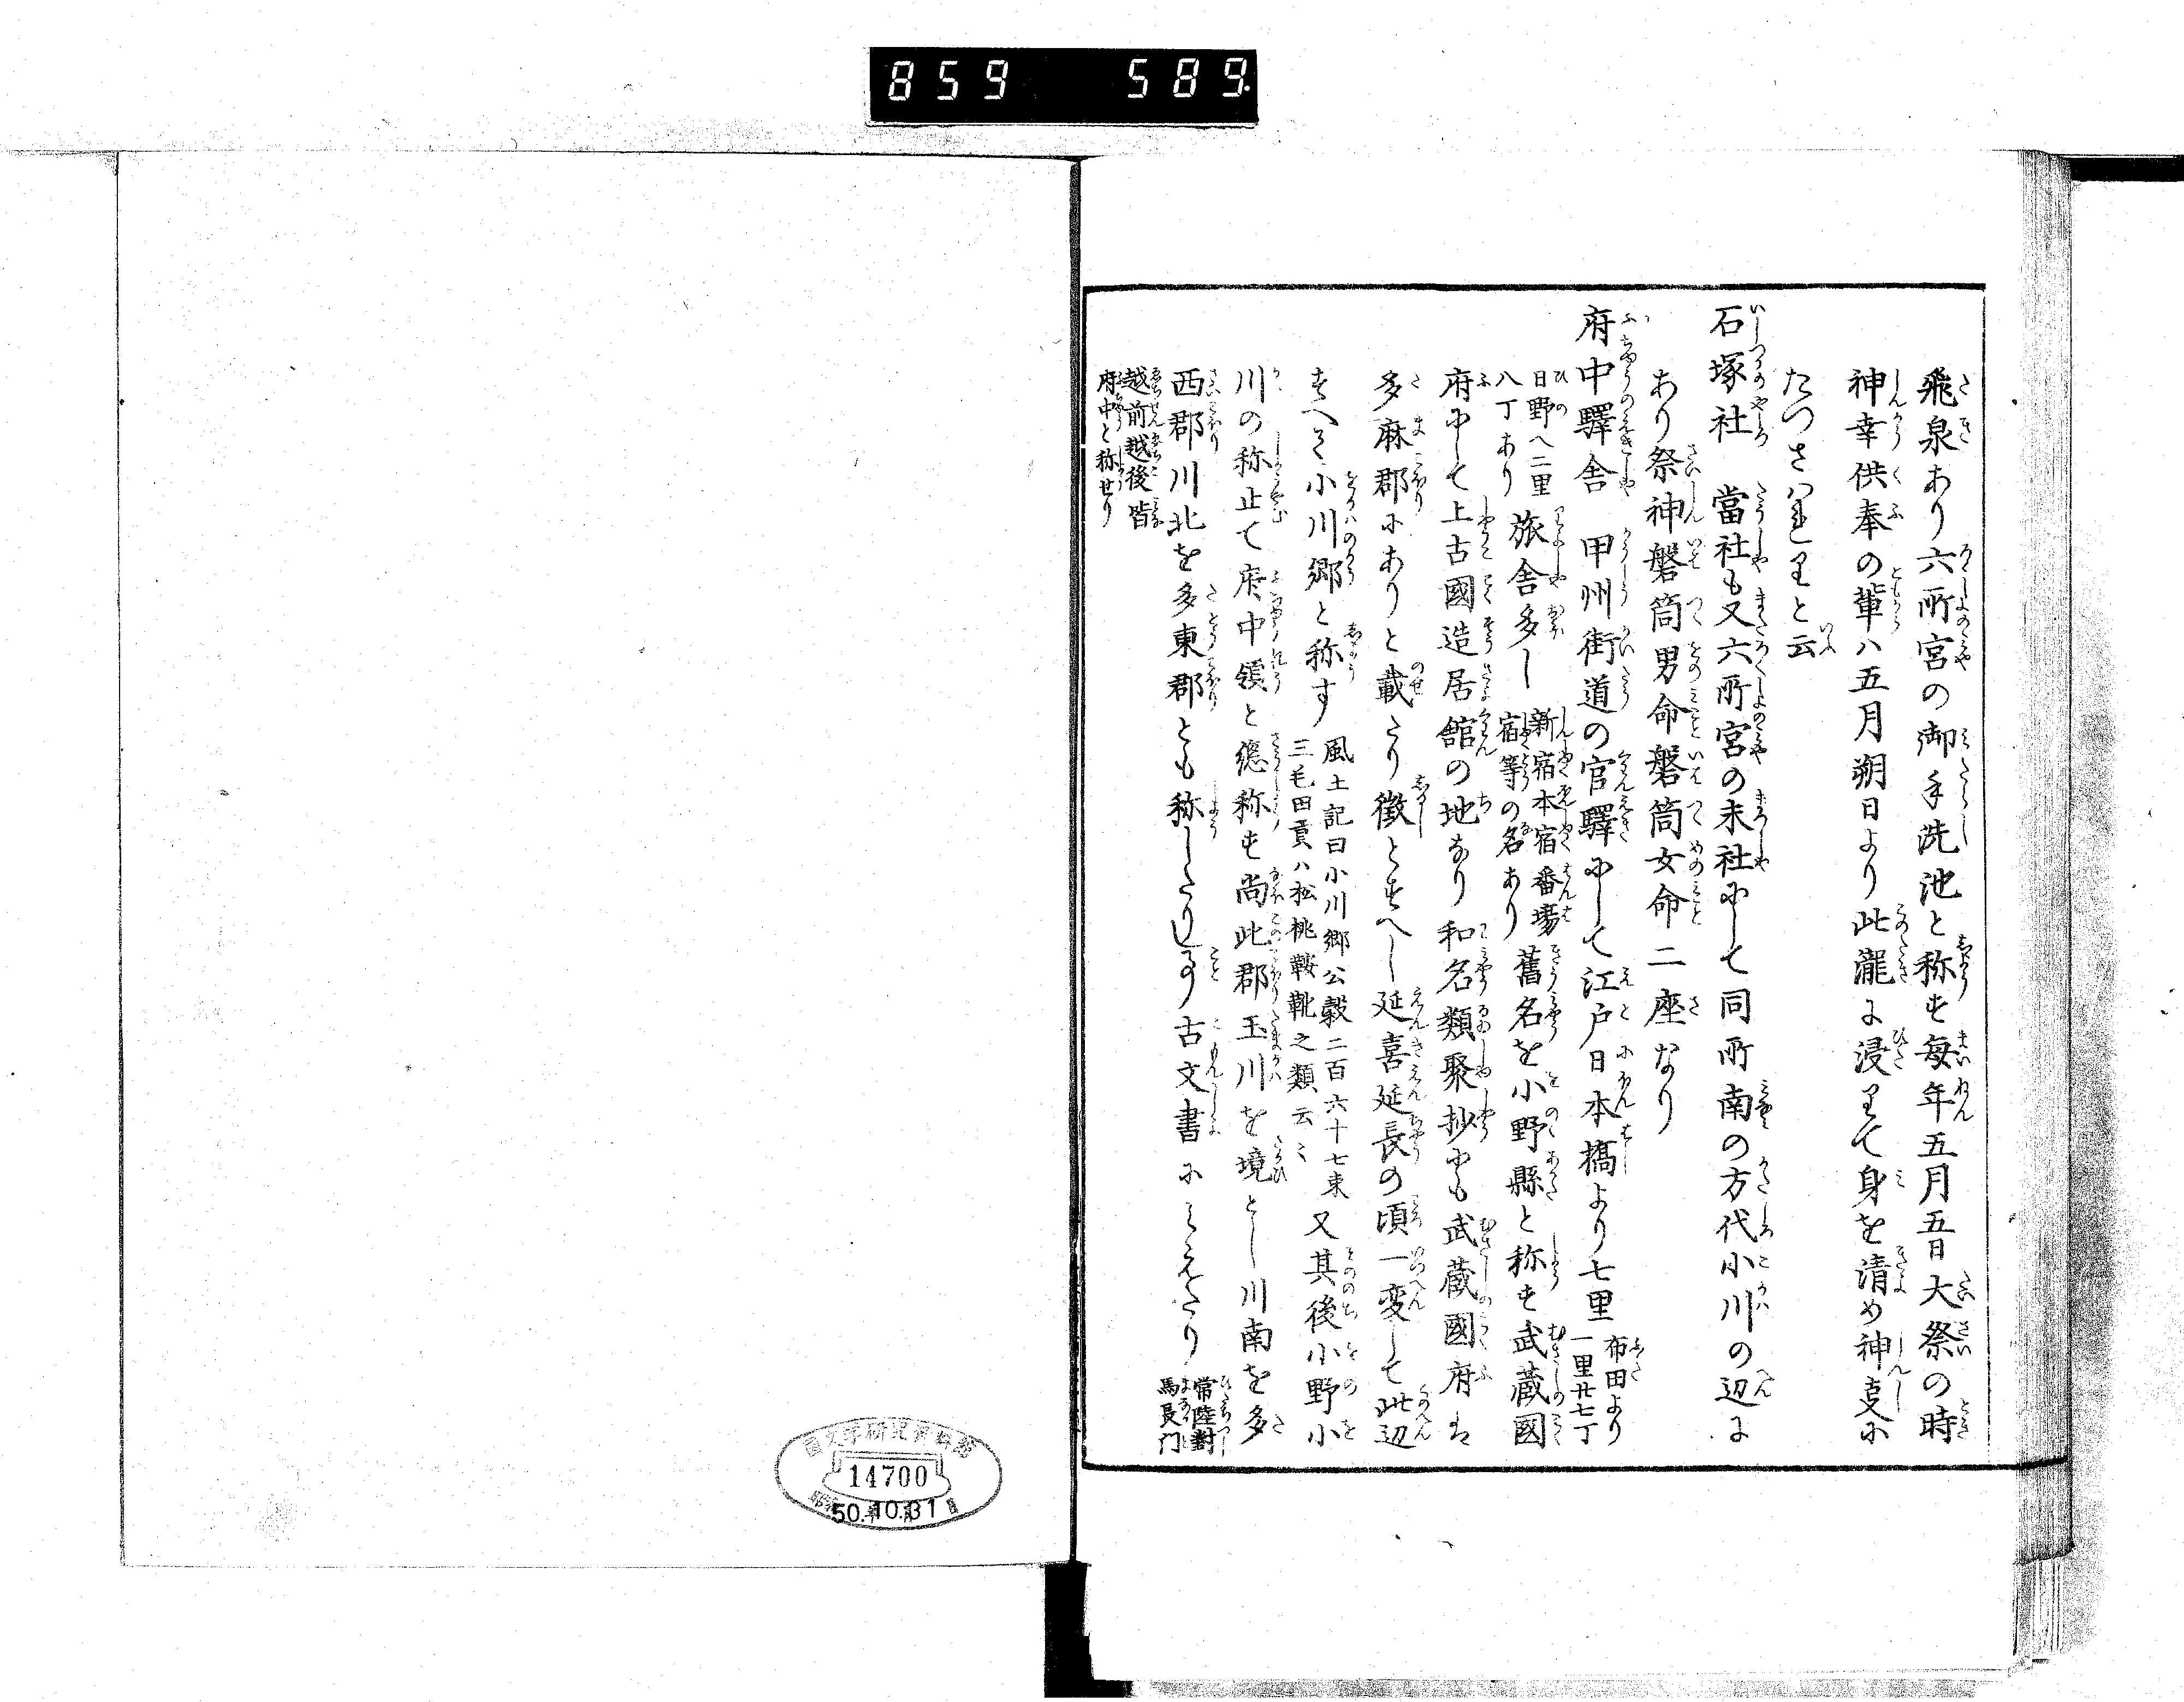 859 589
飛泉あり六所宮の御手洗池と称す毎年五月五日大祭の時
神幸供奉の輩ハ五月朔日より此瀧に浸りて身を清め神事に
たつさハれりと云
石塚社 當社も又六所宮の末社にして同所南の方代小川の辺に
あり祭神磐筒男命磐筒女命二座なり
府中驛舎 甲州街道の官驛にして江戸日本橋より七里 布田より一里廿七丁
日野へ二里八丁あり 旅舎多し 新宿本宿番場宿等の名あり 舊名を小野縣と称す武蔵國
府にして上古國造居舘の地なり和名類聚抄にも武蔵國府は
多麻郡にありと載たり徴とすへし延喜延長の頃一変して此辺
すへて小川郷と称す 風土記曰小川郷公穀二百六十七束三毛田貢ハ松桃鞍靴之類云〻 又其後小野小
川の称止て府中領と総称す尚此郡玉川を境とし川南を多
西郡川北を多東郡とも称したりし事古文書にみえたり 常陸對馬長门
越前越後皆府中と称せり
國文学研究資料館
14700
昭和50年10月31日